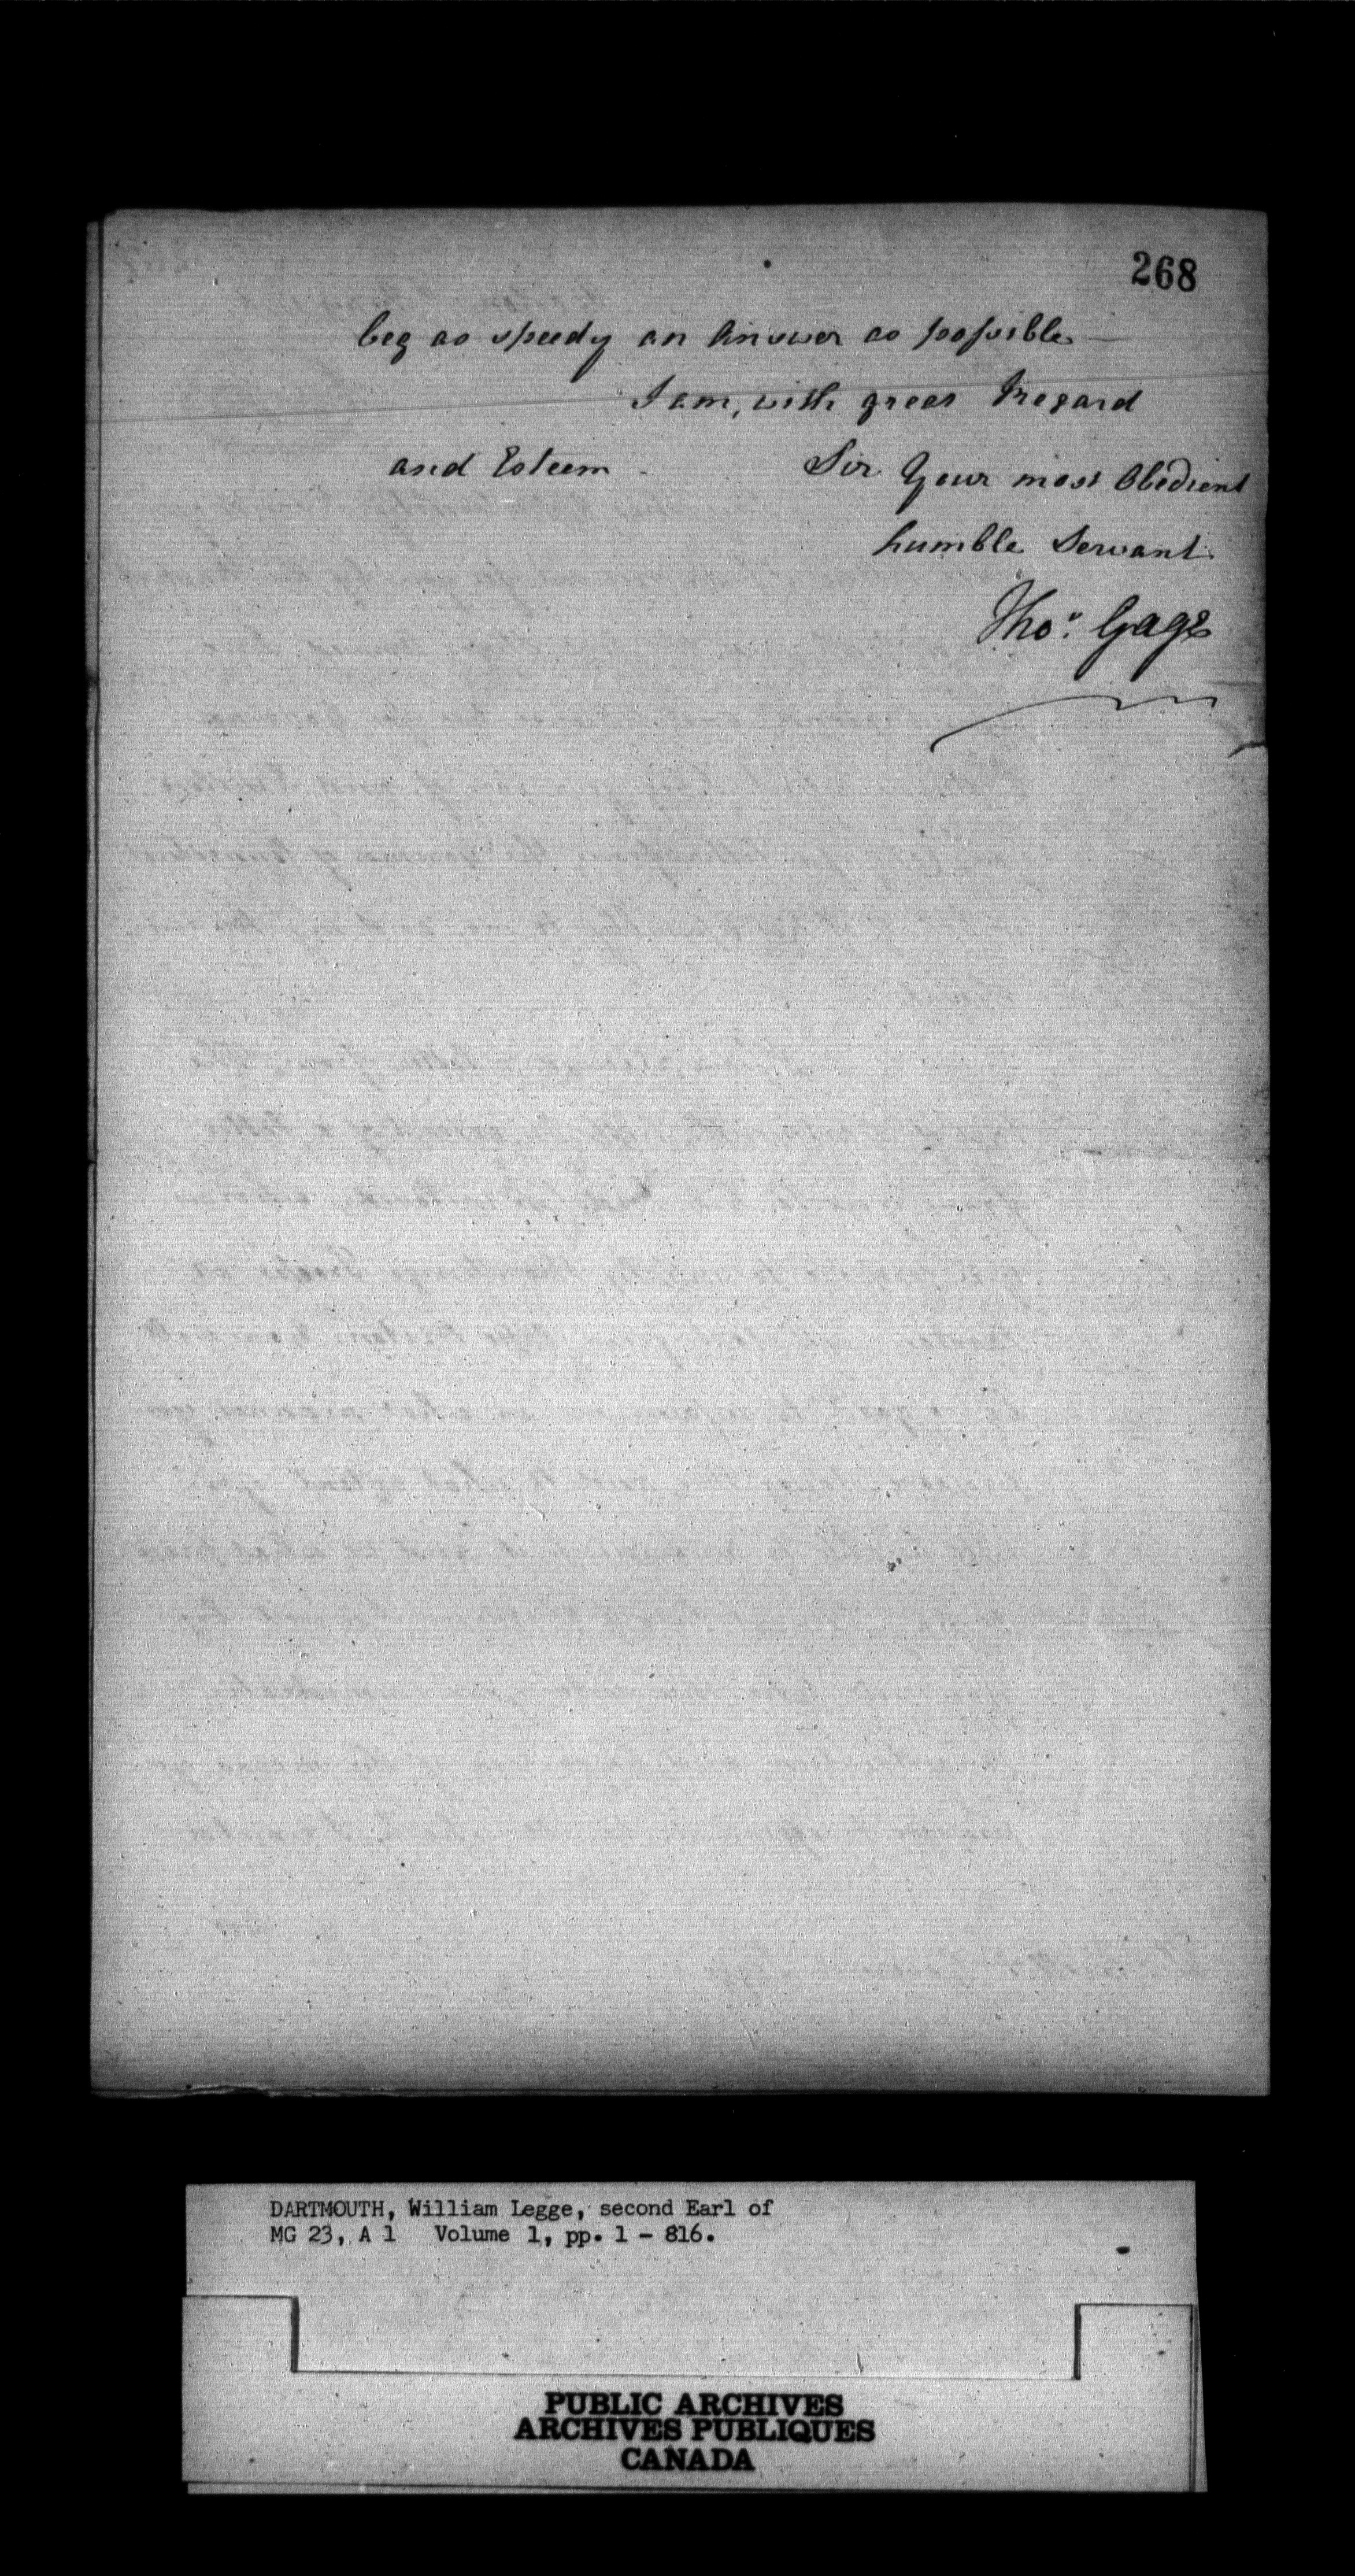 268
beg as speedy an Answer as possible
I am, with great Regard
and Esteem Sir Your most Obedient
humble Servant
Tho.s Gage
DARTMOUTH, William Legge, second Earl of
MG 23, A 1 Volume 1, pp. 1 - 816.
PUBLIC ARCHIVES
ARCHIVES PUBLIQUES
CANADA